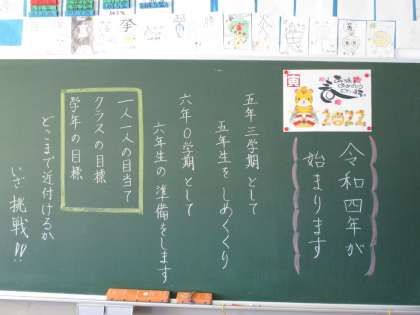 寅
春
2022
令和四年が
始まります
五年三学期として
五年生をしめくくり
六年0学期として
六年生の準備をします
一人一人の目当て
クラスの目標
学年の目標
どこまで近付けるか
いざ挑戦!!